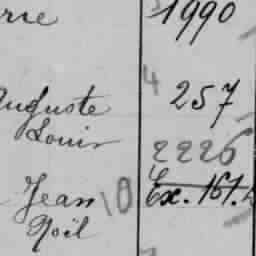 1990
Auguste 257
Louis 2226
Jean 10 Ex. 161.
Noël